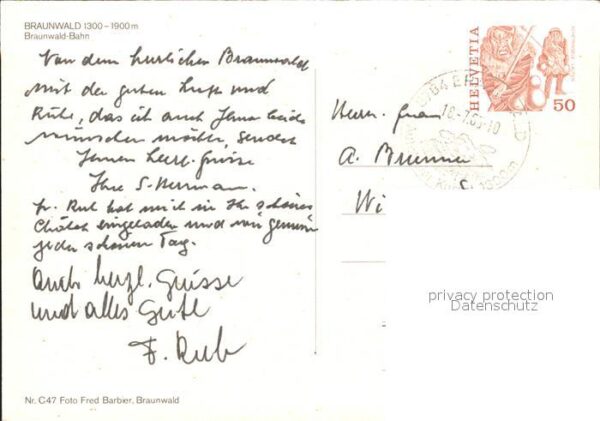 BRAUNWALD 1300 – 1900 m
Braunwald-Bahn
Von dem herrlichen Braunwald
mit der guten Luft und
Ruhe, das ich auch Ihnen beide
wünschen möchte, sendet
Ihnen herzl. Grüsse
Ihre S. Herrmann.
Fr. Rub hat mich in Ihr schönes
Châlet eingeladen und wir geniessen
jeden schönen Tag.
Auch herzl. Grüsse
und alles Gute
F. Rub
Nr. C47 Foto Fred Barbier, Braunwald
HELVETIA
50
1900m
Herrn. Frau
A. Brunner
Wi
privacy protection
Datenschutz